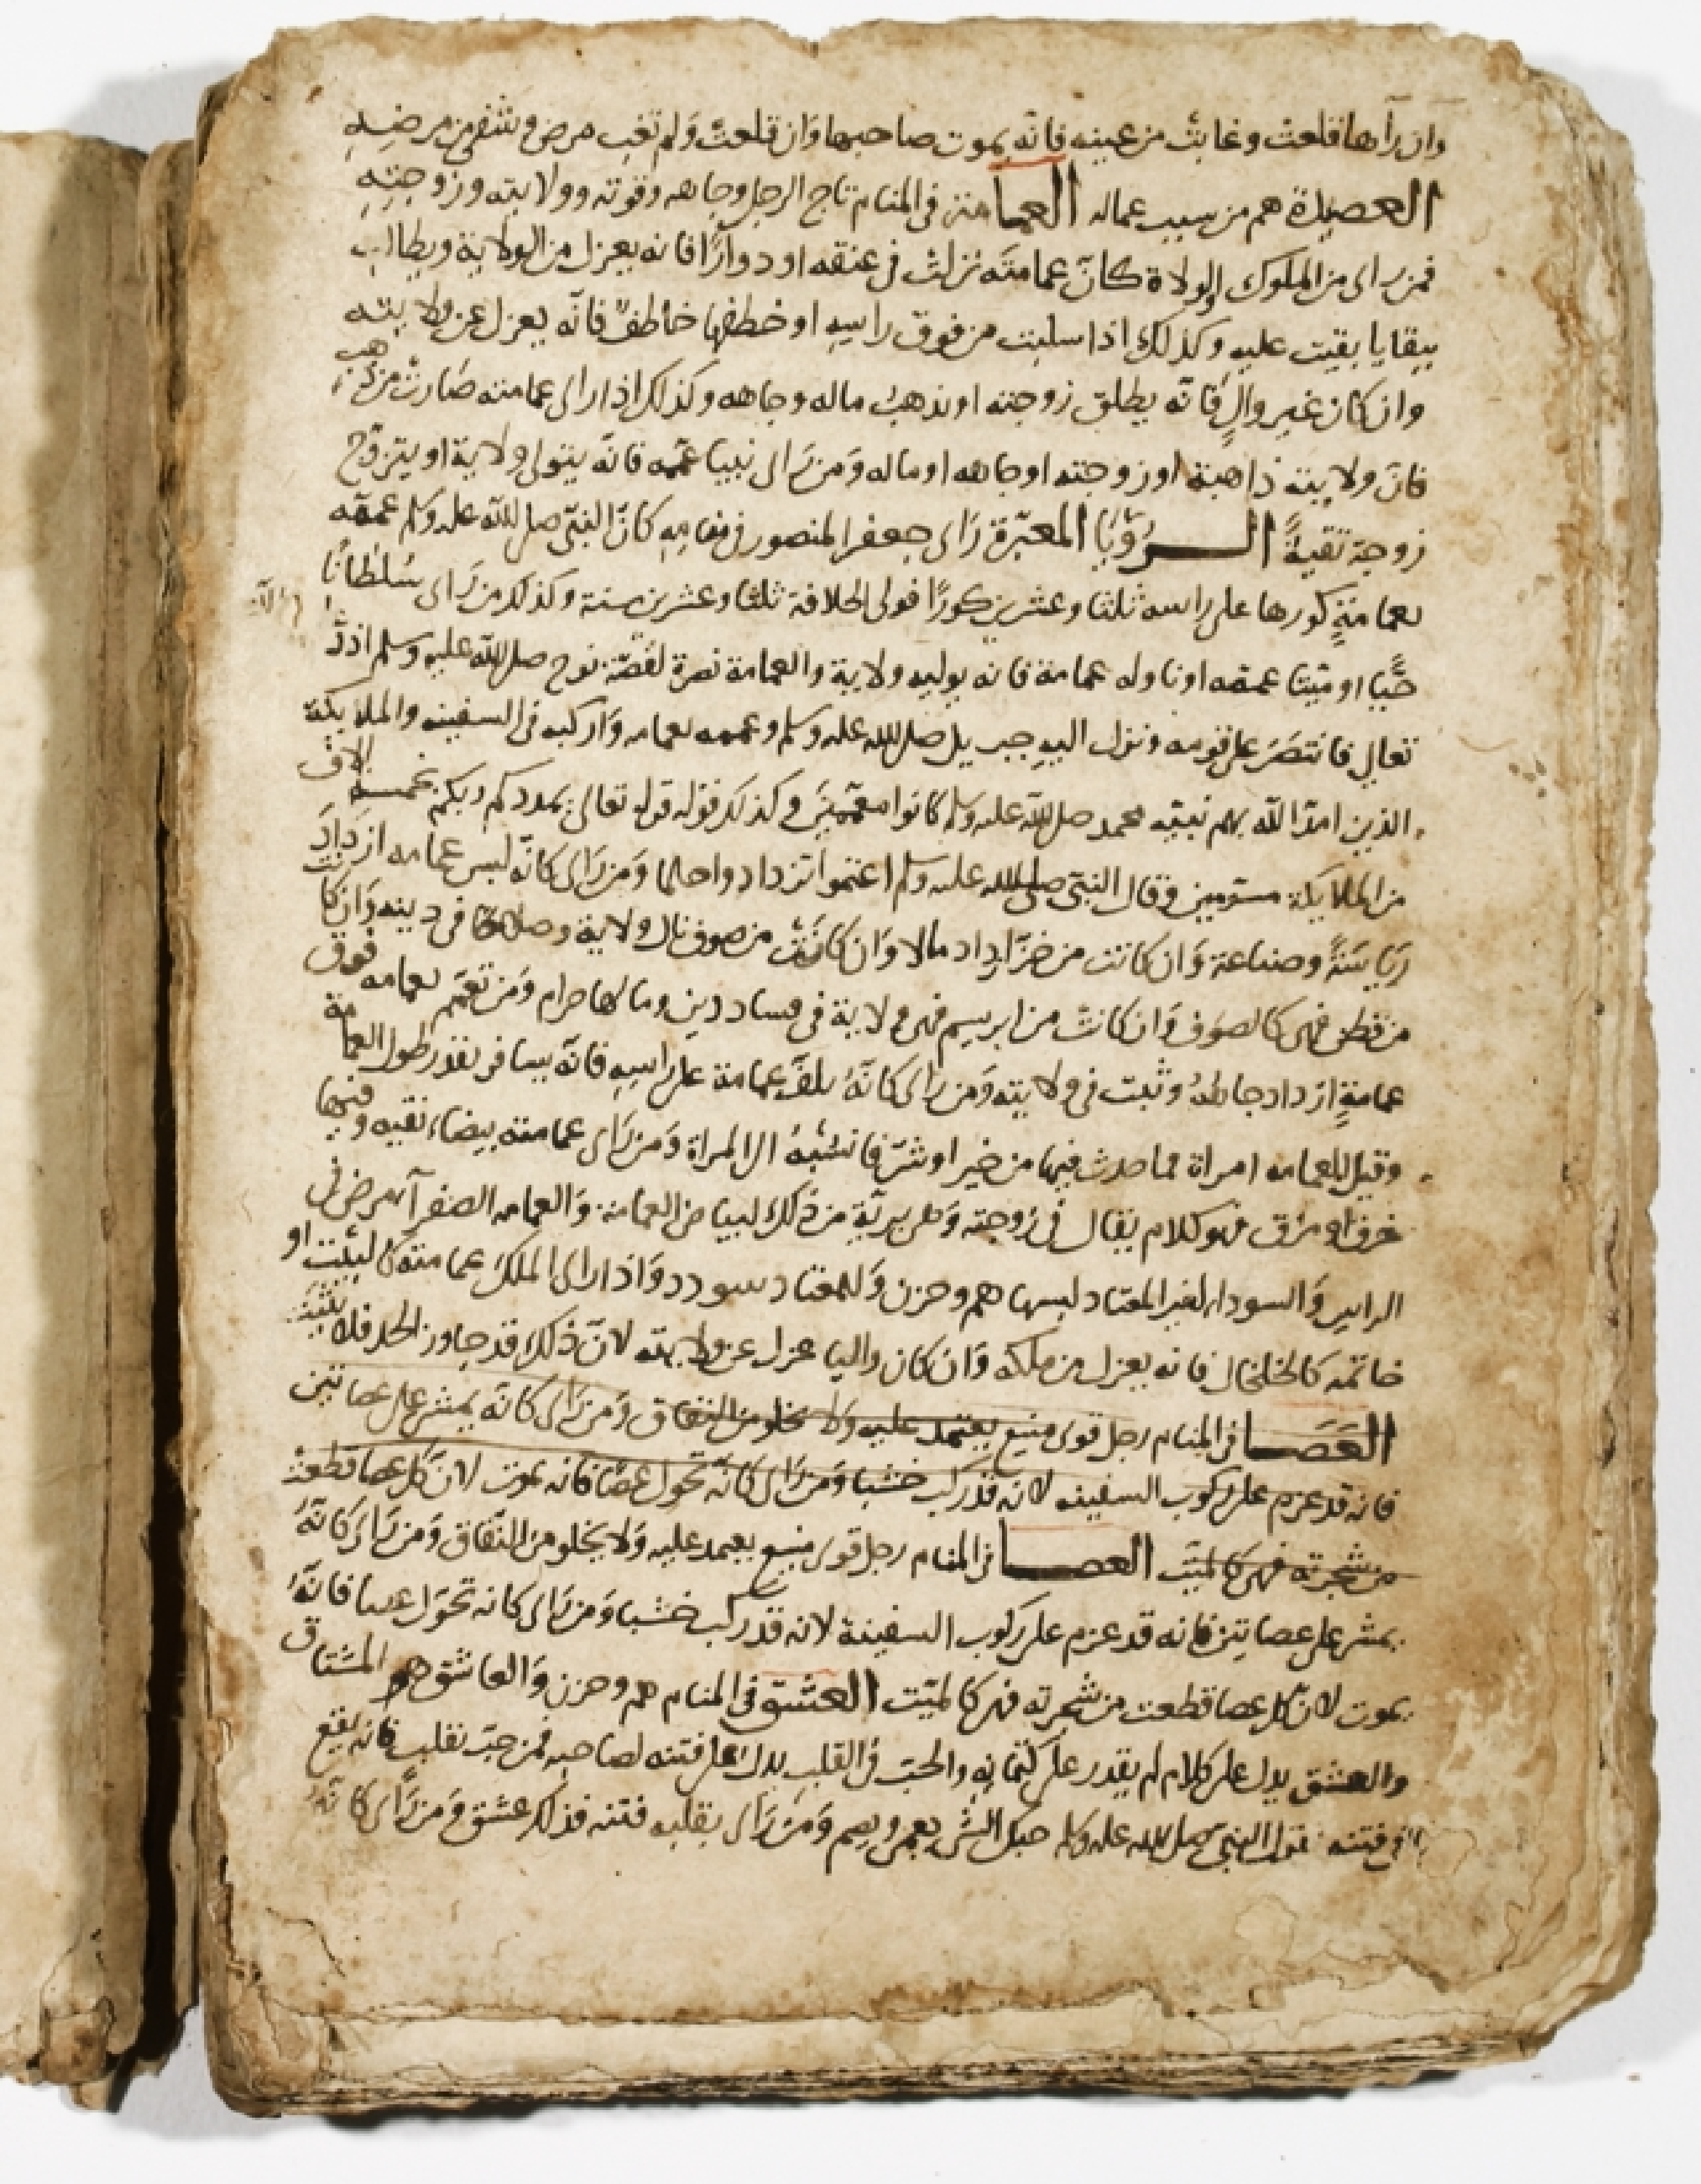 وان رآها قلعت وغابت من عينيه فانه يموت صاحبها وان قلعت ولم تغب مرض وشفي من مرضه
العصيدة هم من سبب عماله العمامة في المنام تاج الرجل وجاهه وقوته وولايته وزوجته
فمن راى من الملوك والولاة كان عمامته نزلت في عنقه او دوارًا فانه يعزل من الولاية ويطالب
ببقايا بقيت عليه وكذلك اذا سلبت من فوق راسه او خطفها خاطف فانه يعزل عن ولايته
وان كان غير والٍ فانه يطلق زوجته او يذهب ماله وجاهه وكذلك اذا راى عمامته صارت من ذهب
فان ولايته ذاهبة او زوجته او جاهه او ماله ومن راى نبيا عممه فانه يتولى ولاية او يتزوج
زوجة تقيةً الرؤيا المعبرة راى جعفر المنصور في منامه كان النبي صلى الله عليه وسلم عممه
بعمامةٍ كورها على راسه ثلثا وعشرين كورًا فولى الخلافة ثلثا وعشرين سنة وكذلك من راى سلطانًا
حيا او ميتا عممه او ناوله عمامة فانه يوليه ولاية والعمامة نصرة لقصة نوح صلى الله عليه وسلم
تعالى فانتصر على قومه ونزل اليه جبريل صلى الله عليه وسلم وعممه بعمامه واركبه في السفينه والملايكة
الذين امد الله بهم نبيه محمد صلى الله عليه وسلم كانوا معممين وكذلك قوله قوله تعالى يمددكم ربكم بخمسة الاف
من الملايكة مسومين وقال النبي صلى الله عليه وسلم اعتموا تزدادوا حلما ومن راى كانه لبس عمامه ازداد
رياسةً وصناعة وان كانت من خز ازداد مالا وان كانت من صوف نال ولاية وصلاحا في دينه وان كانت
من قطن فهي كالصوف وان كانت من ابريسم فهي ولاية في فساد دين ومالها حرام ومن تعمم بعمامه فوق
عمامةٍ ازداد جاهه وثبت في ولايته ومن راى كانه يلف عمامة على راسه فانه يسافر بقدر طول العمامة
وقيل للعمامه امراة فما حدث فيها من خير او شر فانسبه الى المراة ومن راى عمامته بيضاء نقيه وفيها
خرق او مزق فهو كلام يقال في زوجته وهي بريّة من ذلك لبياض العمامة والعمامه الصفرآ مرض في
الراس والسوداء لغير المعتاد لبسها هم وحزن وللمعتاد سودد واذا راى الملك عمامته لبئت او
خاتمه كالخلخال فانه يعزل من ملكه وان كان واليا عزل عن ولايته لان ذلك قد جاوز الحد فلا
العَصَا في المنام رجل قوى منيع يعتمد عليه ولا يخلو من النفاق ومن راى كانه يمشي على عصاتين
فانه قد عزم على ركوب السفينه لانه قد ركب خشبا ومن راى كانه تحول عصًا فانه يموت لان كل عصا قطعت
من شجرته فهي كالميت العصا في المنام رجل قوى منيع يعتمد عليه ولا يخلو من النفاق ومن راى كانه
يمشي على عصاتين فانه قد عزم على ركوب السفينة لانه قد ركب خشبا ومن راى كانه تحول عصا فانه
يموت لان كل عصا قطعت من شجرته فهي كالميت العشق في المنام هم وحزن والعاشق هو المشتاق
والعشق يدل على كلام لم يقدر على كتمانه والحب في القلب يدل على فتنه لصاحبه فمن حب بقلبه فانه يقع
في فتنه لقول النبي صلى الله عليه وسلم حبك الشى يعمى ويصم ومن راى بقلبه فتنه فذلك عشق ومن راى كانه